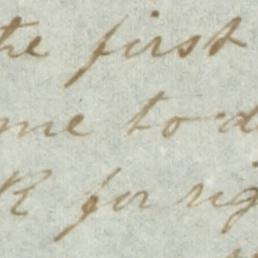 the first
me to d
R for rig